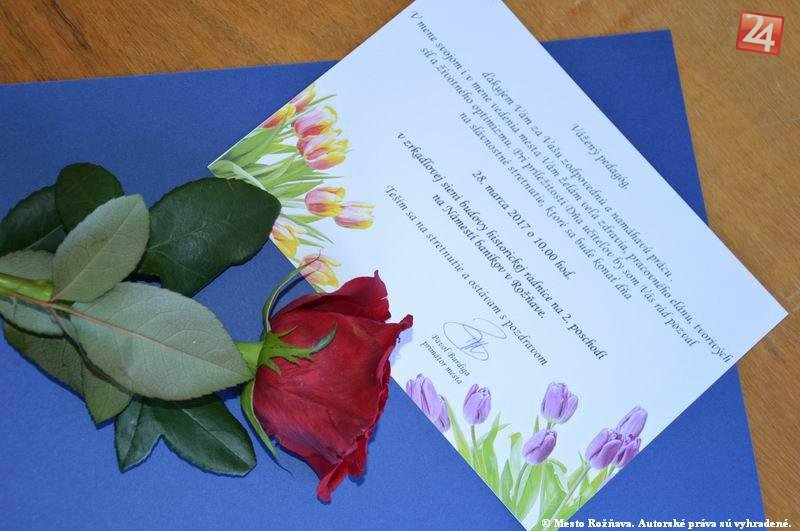 Vážený pedagóg,
ďakujem Vám za Vašu zodpovednú a namáhavú prácu.
V mene svojom i v mene vedenia mesta Vám želám veľa zdravia, pracovného elánu, tvorivých
síl a životného optimizmu. Pri príležitosti Dňa učiteľov by som Vás rád pozval
na slávnostné stretnutie, ktoré sa bude konať dňa
28. marca 2017 o 10.00 hod.
v zrkadlovej sieni budovy historickej radnice na 2. poschodí
na Námestí baníkov v Rožňave.
Teším sa na stretnutie a ostávam s pozdravom
Pavol Burdiga
primátor mesta
24
© Mesto Rožňava. Autorské práva sú vyhradené.